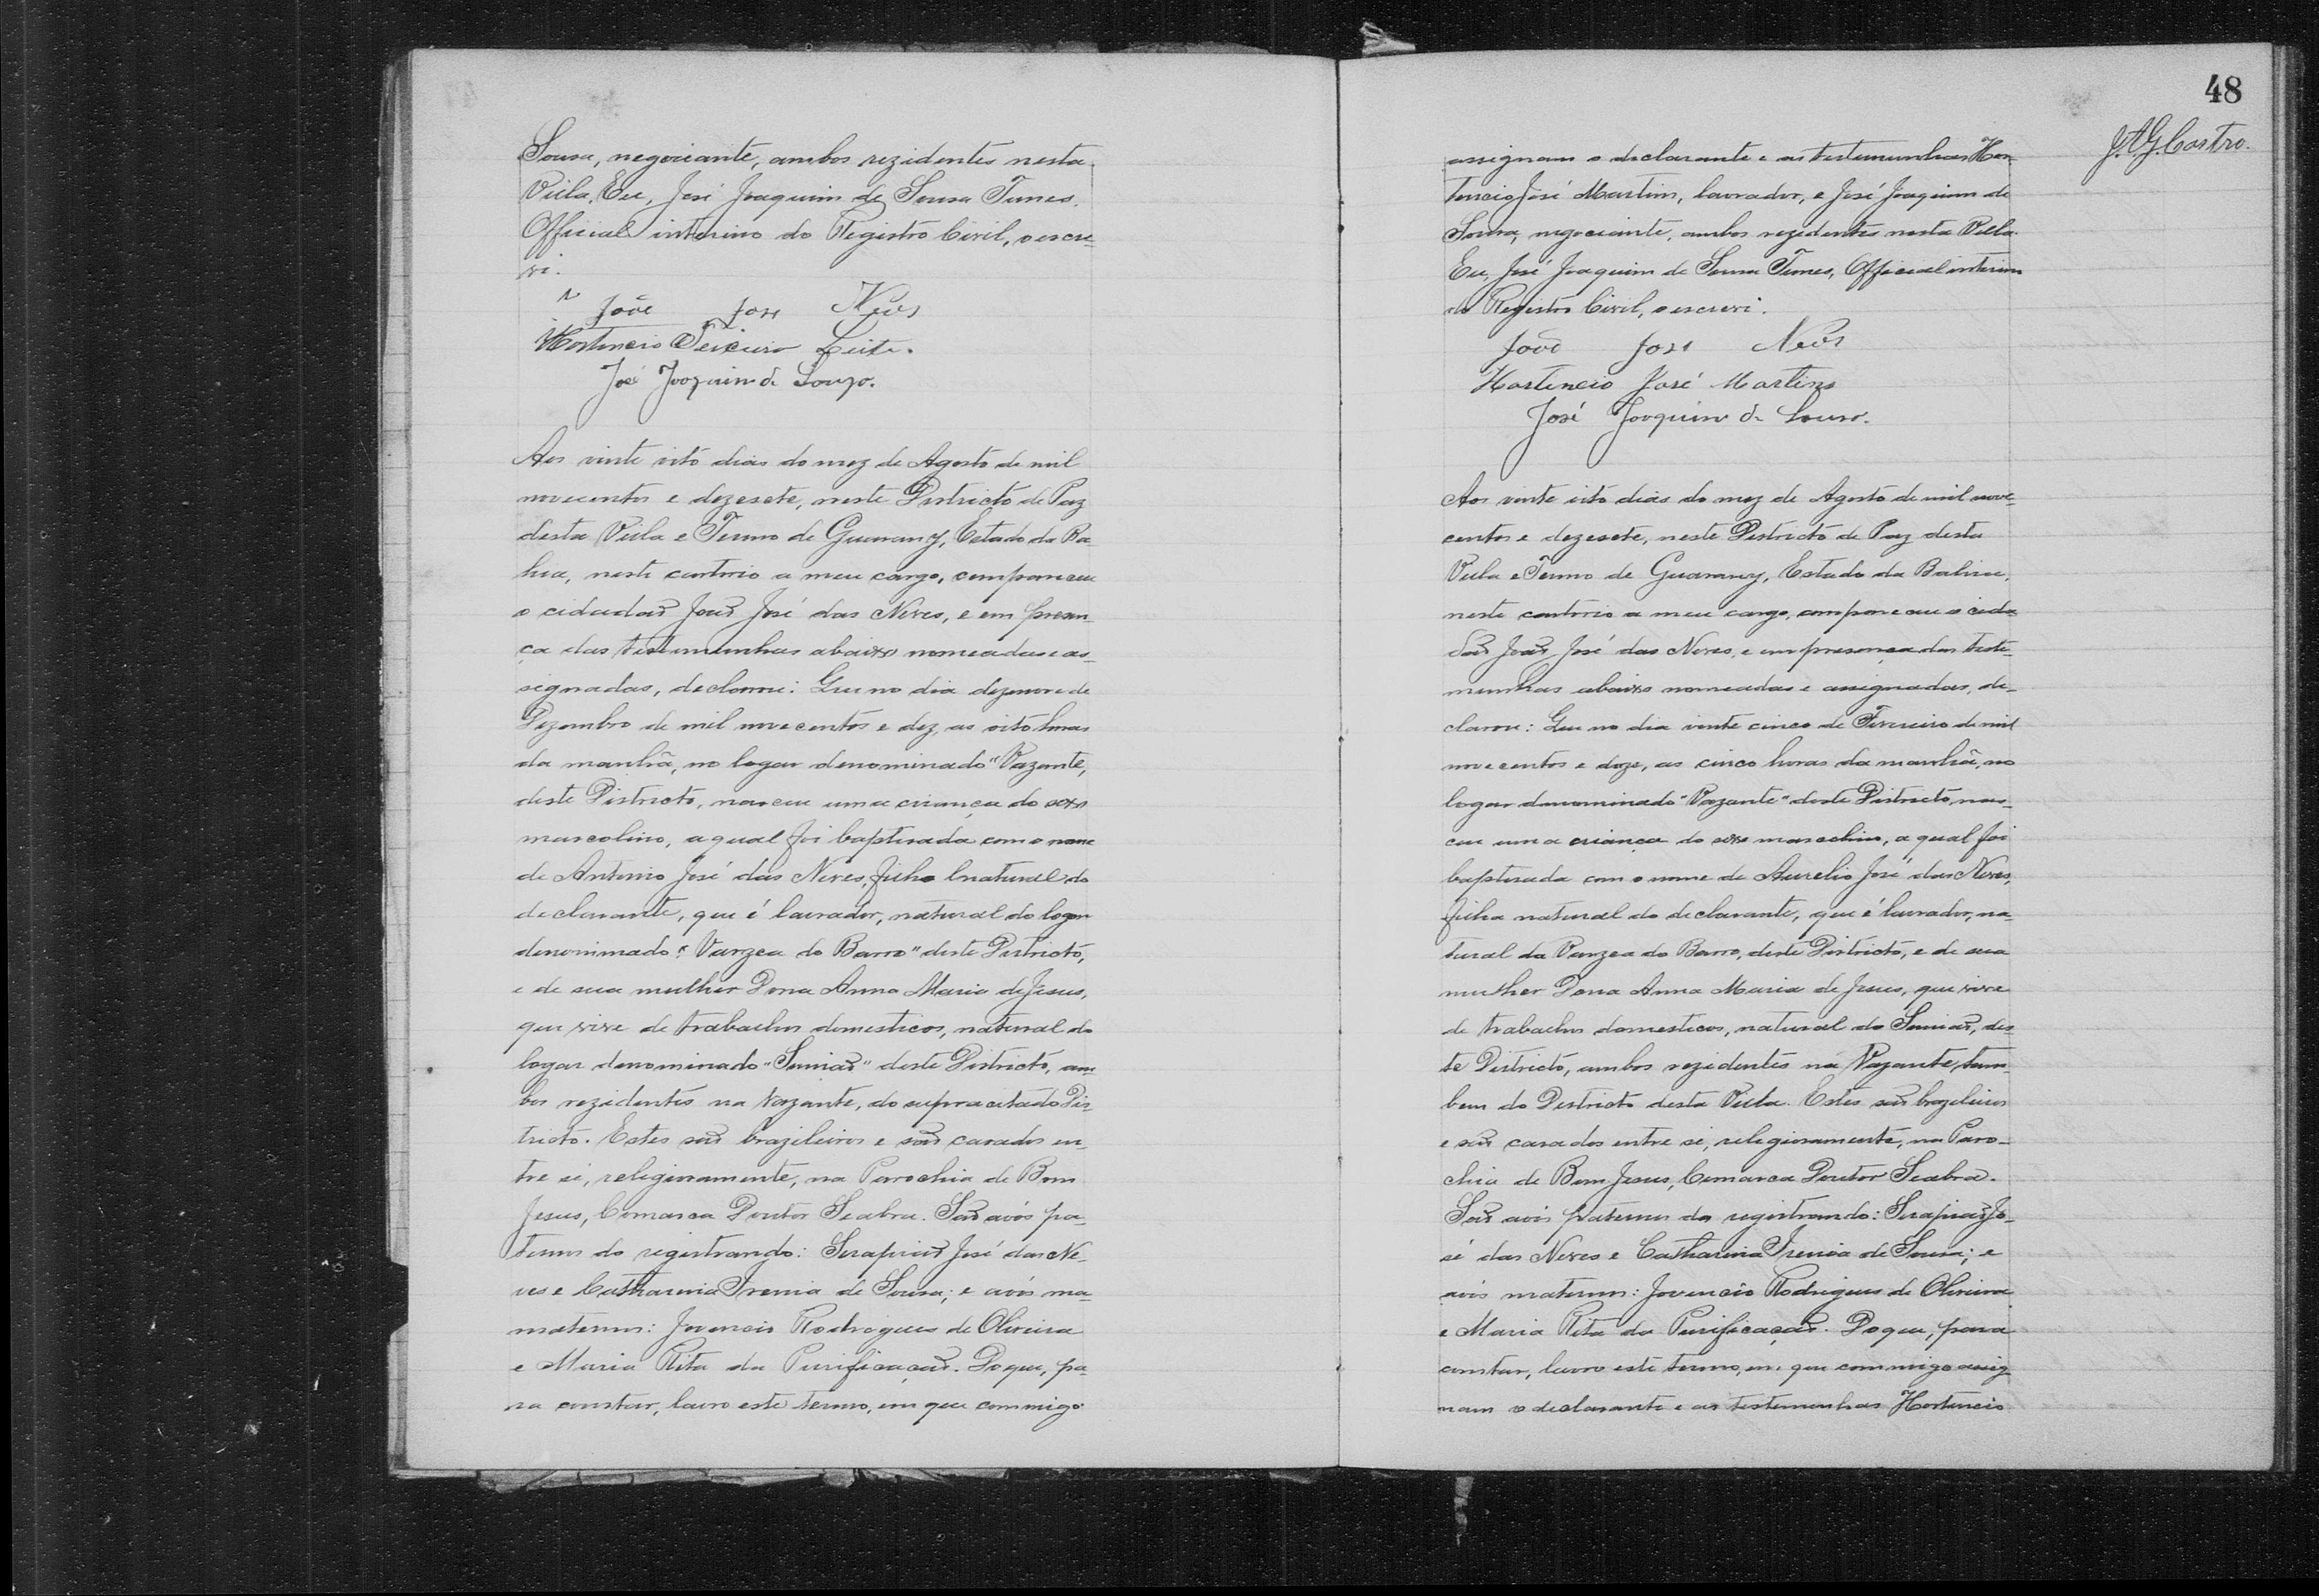 Sousa, negociante, ambos rezidentes nesta
Villa, Eu, José Joaquim de Sousa Tunes,
Official interino do Registro Civil, o escre-
vi.
João José Neves
Hortencio Teixeira Leite.
José Joaquim de Souza.
Aos vinte oito dias do mez de Agosto de mil
novecentos e dezesete, neste Districto de Paz
desta Villa e Termo de Guarany, Estado da Ba-
hia, neste cartorio a meu cargo, compareceu
o cidadão João José das Neves, e em presen-
ça das testemunhas abaixo nomeadas e as-
signadas, declarou: Que no dia dezenove de
Dezembro de mil novecentos e dez, as oito horas
da manhã, no logar denominado "Vazante,
deste Districto, nasceu uma criança do sexo
masculino, a qual foi baptisada com o nome
de Antonio José das Neves, filho natural do
declarante, que é lavrador, natural do logar
denominado "Varzea do Barro" deste Districto,
e de sua mulher Dona Anna Maria de Jesus,
que vive de trabalhos domesticos, natural do
logar denominado "Simião" deste Districto, am-
bos rezidentes na Vazante, do supracitado Dis-
tricto. Estes são brazileiros e são casados en-
tre si, religiosamente, na Parochia de Bom
Jesus, Comarca Doutor Seabra. São avós pa-
ternos do registrando: Serapião José das Ne-
ves e Catharina Irenia de Sousa; e avós ma-
maternos: Jovencio Rodrigues de Oliveira
e Maria Rita da Purificação. Do que, pa-
ra constar, lavro este termo, em que commigo
48
J.A.G. Castro.
assignam o declarante e as testemunhas Hor-
tencio José Martins, lavrador, e José Joaquim de
Sousa, negociante, ambos rezidentes nesta Villa.
Eu, José Joaquim de Sousa Tunes, Official interino
do Registro Civil, o escrevi.
João José Neves
Hortencio José Martins
José Joaquim de Souza.
Aos vinte oito dias do mez de Agosto de mil nove-
centos e dezesete, neste Districto de Paz desta
Villa e Termo de Guarany, Estado da Bahia,
neste cartorio a meu cargo, compareceu o cida-
dão João José das Neves, e em presença das teste-
munhas abaixo nomeadas e assignadas, de-
clarou: Que no dia vinte cinco de Fevereiro de mil
novecentos e doze, as cinco horas da manhã, no
logar denominado "Vazante" deste Districto, nas-
ceu uma criança do sexo masculino, a qual foi
baptisada com o nome de Aurelio José das Neves,
filho natural do declarante, que é lavrador, na-
tural da Varzea do Barro, deste Districto, e de sua
mulher Dona Anna Maria de Jesus, que vive
de trabalhos domesticos, natural do Simião, des-
te Districto, ambos rezidentes na Vazante, tam-
bem do Districto desta Villa. Estes são brazileiros
e são casados entre si, religiosamente, na Paro-
chia de Bom Jesus, Comarca Doutor Seabra.
São avós paternos do registrando: Serapião Jo-
sé das Neves e Catharina Irenia de Sousa; e
avós maternos: Jovencio Rodrigues de Oliveira
e Maria Rita da Purificação. Do que, para
constar, lavro este termo, em que commigo assig-
nam o declarante e as testemunhas Hortencio